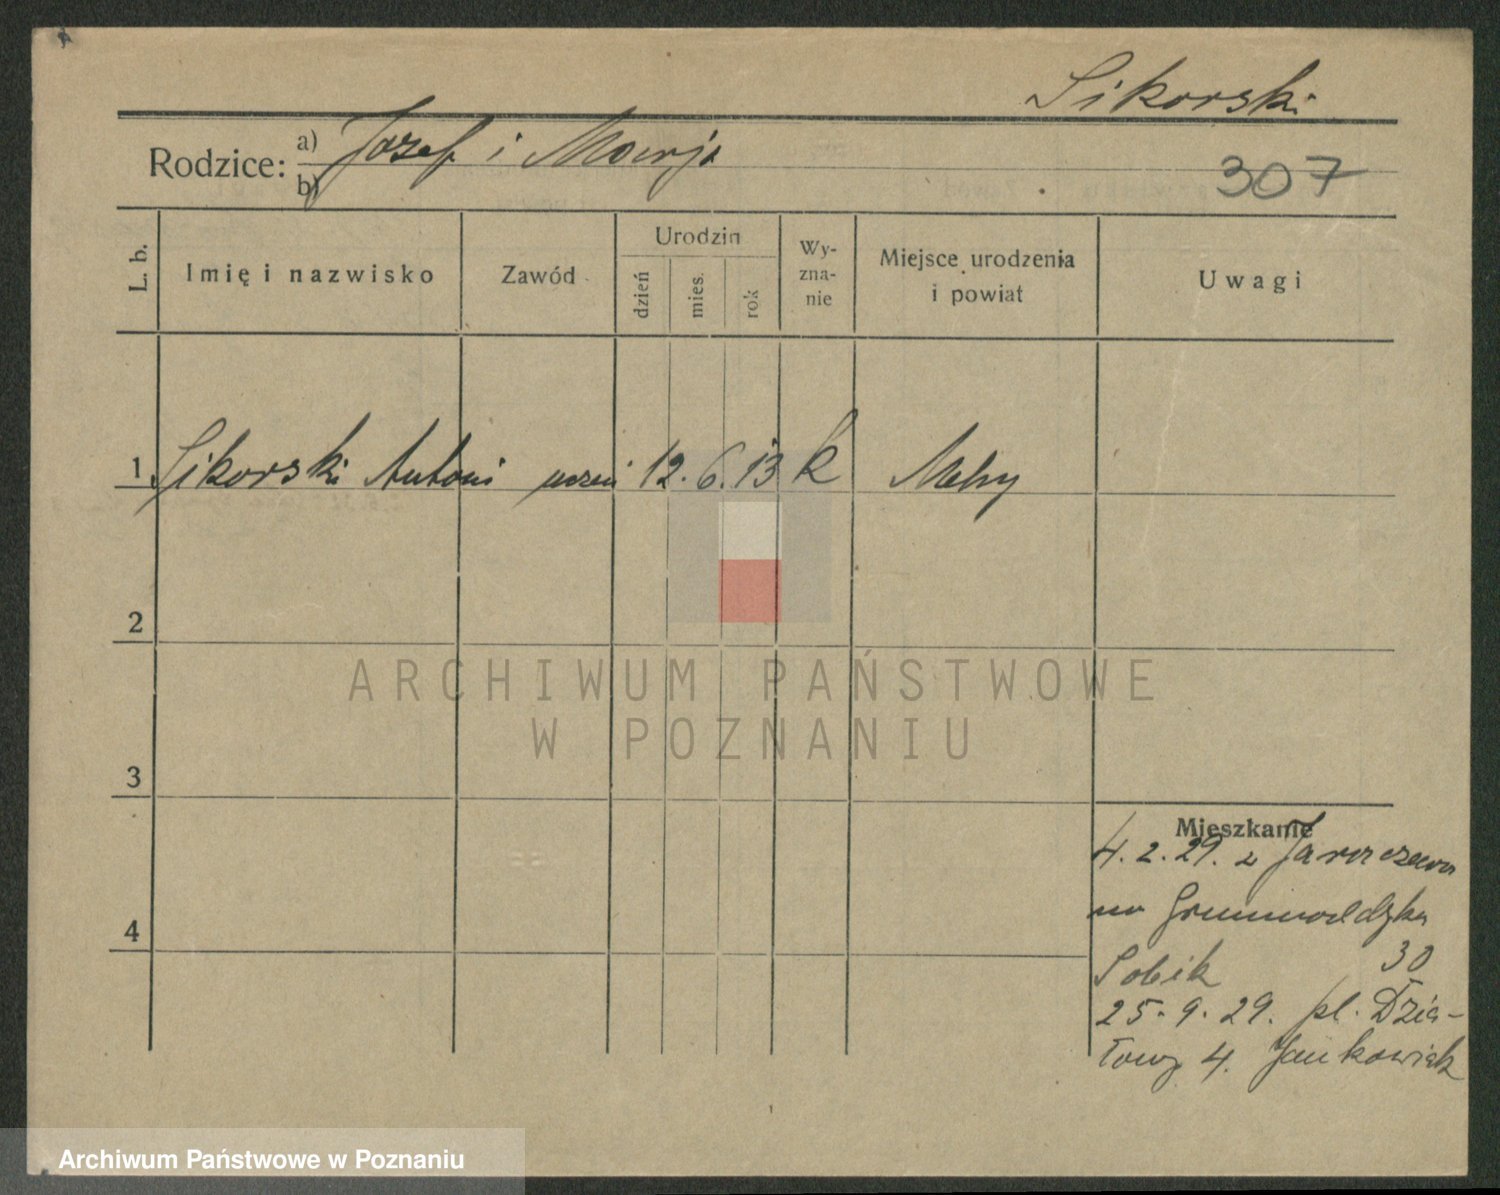 Sikorski
Rodzice: a) Jozef i Marja
b)
307
L. b.
Imię i nazwisko
Zawód
Urodzin
dzień
mies.
rok
Wy-
zna-
nie
Miejsce urodzenia
i powiat
Uwagi
1 Sikorski Antoni uczeń 12. 6. 13 k
2
ARCHIWUM PAŃSTWOWE
W POZNANIU
3
Mieszkanie
4. 2. 29. z Jaroczewa
na Grunwaldzka
4
Sobik 30
25. 9. 29. pl. Dzia-
łowy 4. Jankowiak
Archiwum Państwowe w Poznaniu